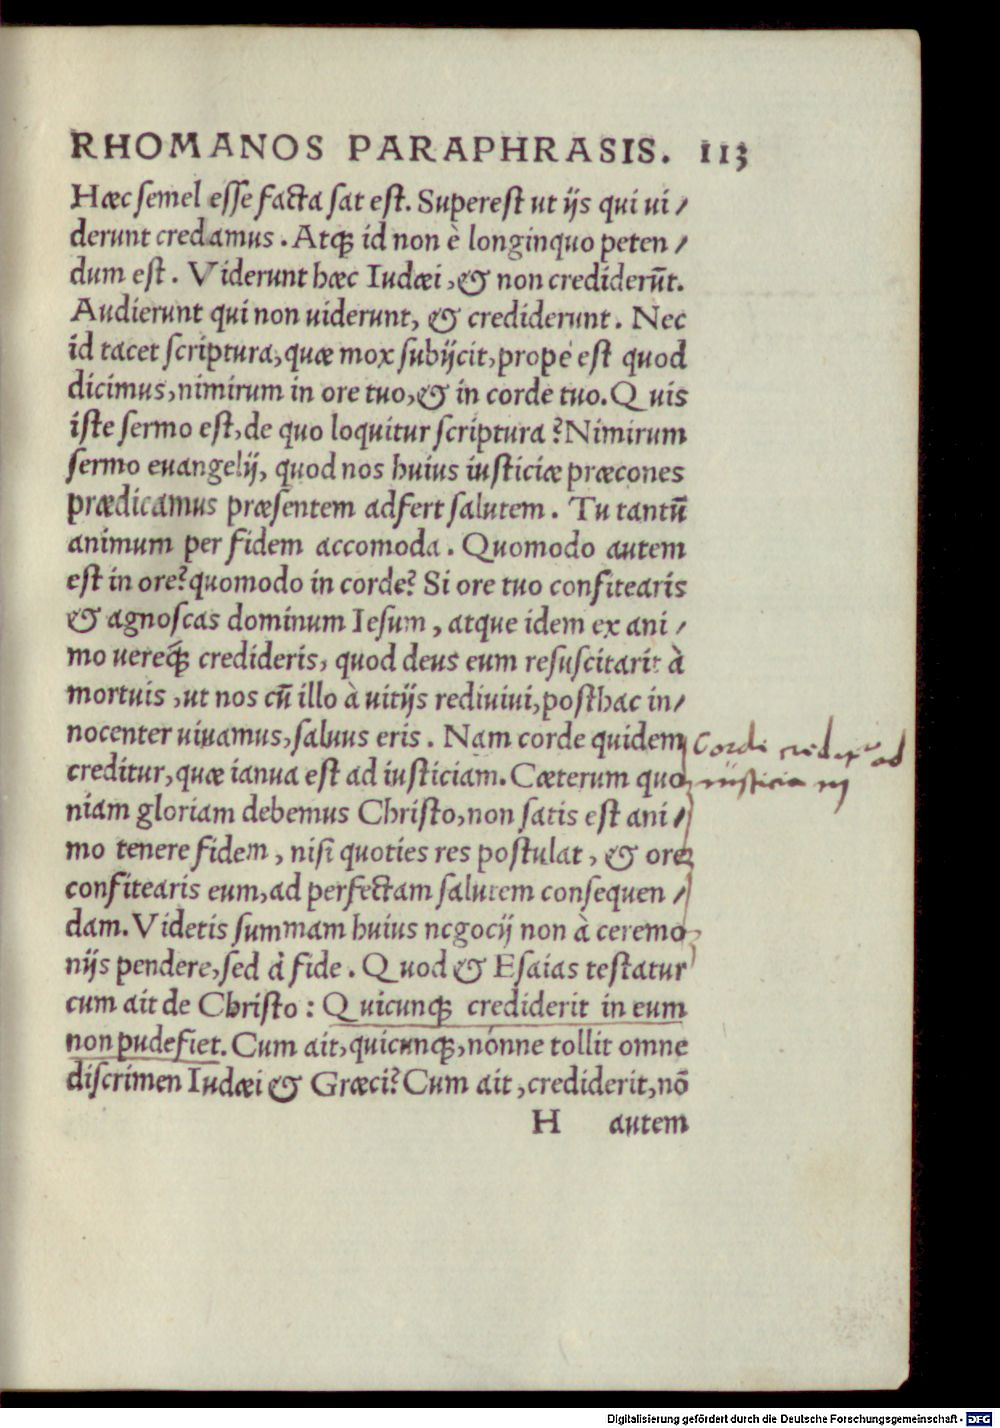 RHOMANOS PARAPHRASIS. 113
Hæc ſemel eſſe facta ſat eſt. Supereſt ut ijs qui ui/
derunt credamus. Atqꝫ id non è longinquo peten/
dum eſt. Viderunt hæc Iudæi, & non crediderũt.
Audierunt qui non uiderunt, & crediderunt. Nec
id tacet ſcriptura, quæ mox ſubijcit, prope eſt quod
dicimus, nimirum in ore tuo, & in corde tuo. Quis
iſte ſermo eſt, de quo loquitur ſcriptura? Nimirum
ſermo euangelij, quod nos huius iuſticiæ præcones
prædicamus præſentem adfert ſalutem. Tu tantũ
animum per fidem accomoda. Quomodo autem
eſt in ore? quomodo in corde? Si ore tuo confitearis
& agnoſcas dominum Ieſum, atque idem ex ani/
mo uereqꝫ́ credideris, quod deus eum reſuſcitarit à
mortuis, ut nos cũ illo à uitijs rediuiui, poſthac in/
nocenter uiuamus, ſaluus eris. Nam corde quidem
creditur, quæ ianua eſt ad iuſticiam. Cæterum quo
niam gloriam debemus Chriſto, non ſatis eſt ani/
mo tenere fidem, niſi quoties res poſtulat, & ore
confitearis eum, ad perfectam ſalutem conſequen/
dam. Videtis ſummam huius negocij non à ceremo
nijs pendere, ſed à fide. Quod & Eſaias teſtatur
cum ait de Chriſto: Quicunqꝫ crediderit in eum
non pudefiet. Cum ait, quicunqꝫ, nónne tollit omne
diſcrimen Iudæi & Græci? Cum ait, crediderit, nõ
H autem
Corde ad
iusticiam
Digitalisierung gefördert durch die Deutsche Forschungsgemeinschaft - DFG